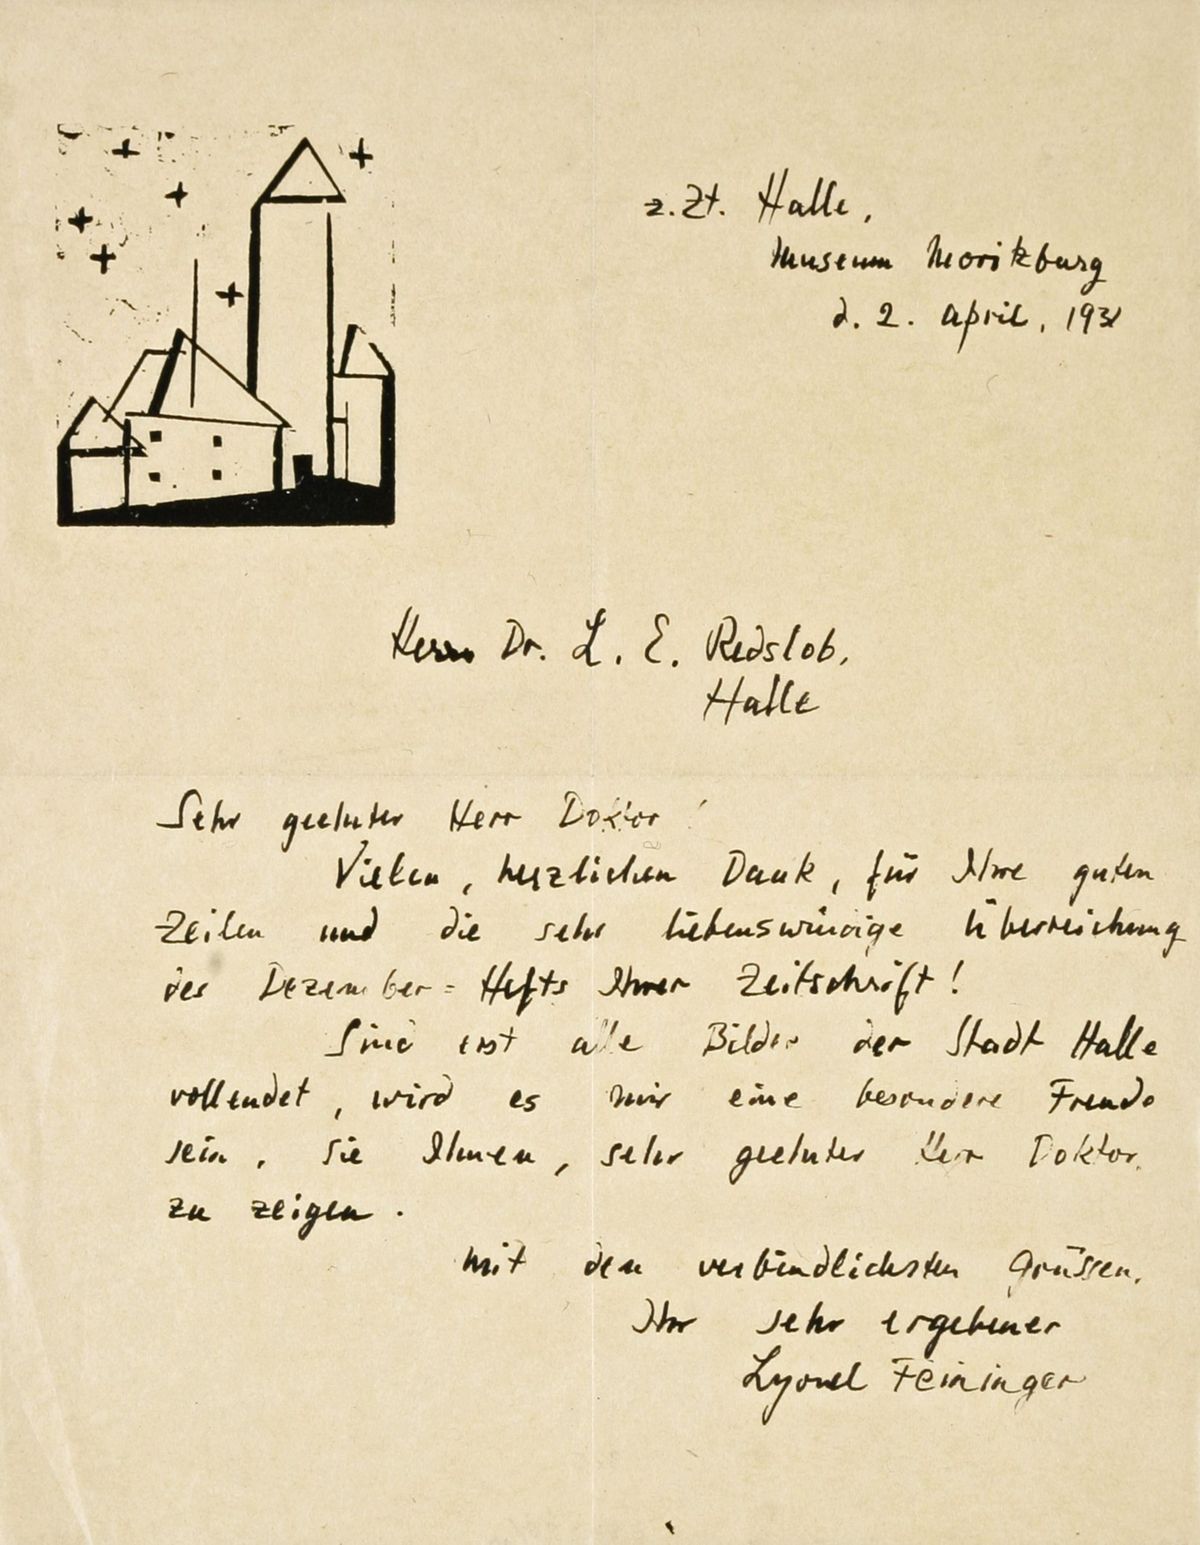 z. Zt. Halle,
Museum Moritzburg
d. 2. April, 1931
Herrn Dr. L. E. Redslob,
Halle
Sehr geehrter Herr Doktor!
Vielen, herzlichen Dank, für Ihre guten
Zeilen und die sehr liebenswürdige Überreichung
des Dezember=Hefts Ihrer Zeitschrift!
Sind erst alle Bilder der Stadt Halle
vollendet, wird es mir eine besondere Freude
sein, sie Ihnen, sehr geehrter Herr Doktor,
zu zeigen.
Mit den verbindlichsten Grüssen,
Ihr sehr ergebener
Lyonel Feininger